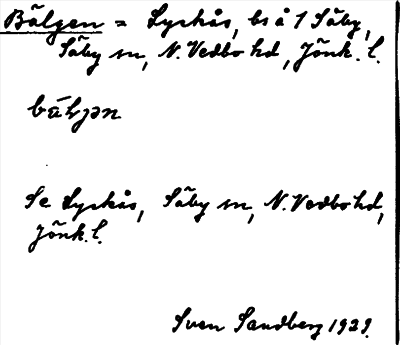 Bälgen = Lyckås, bs å 1 Säby,
Säby sn, N. Vedbo hd, Jönk. l.
Se Lyckås, Säby sn, N. Vedbo hd,
Jönk. l.
Sven Sandberg 1929.